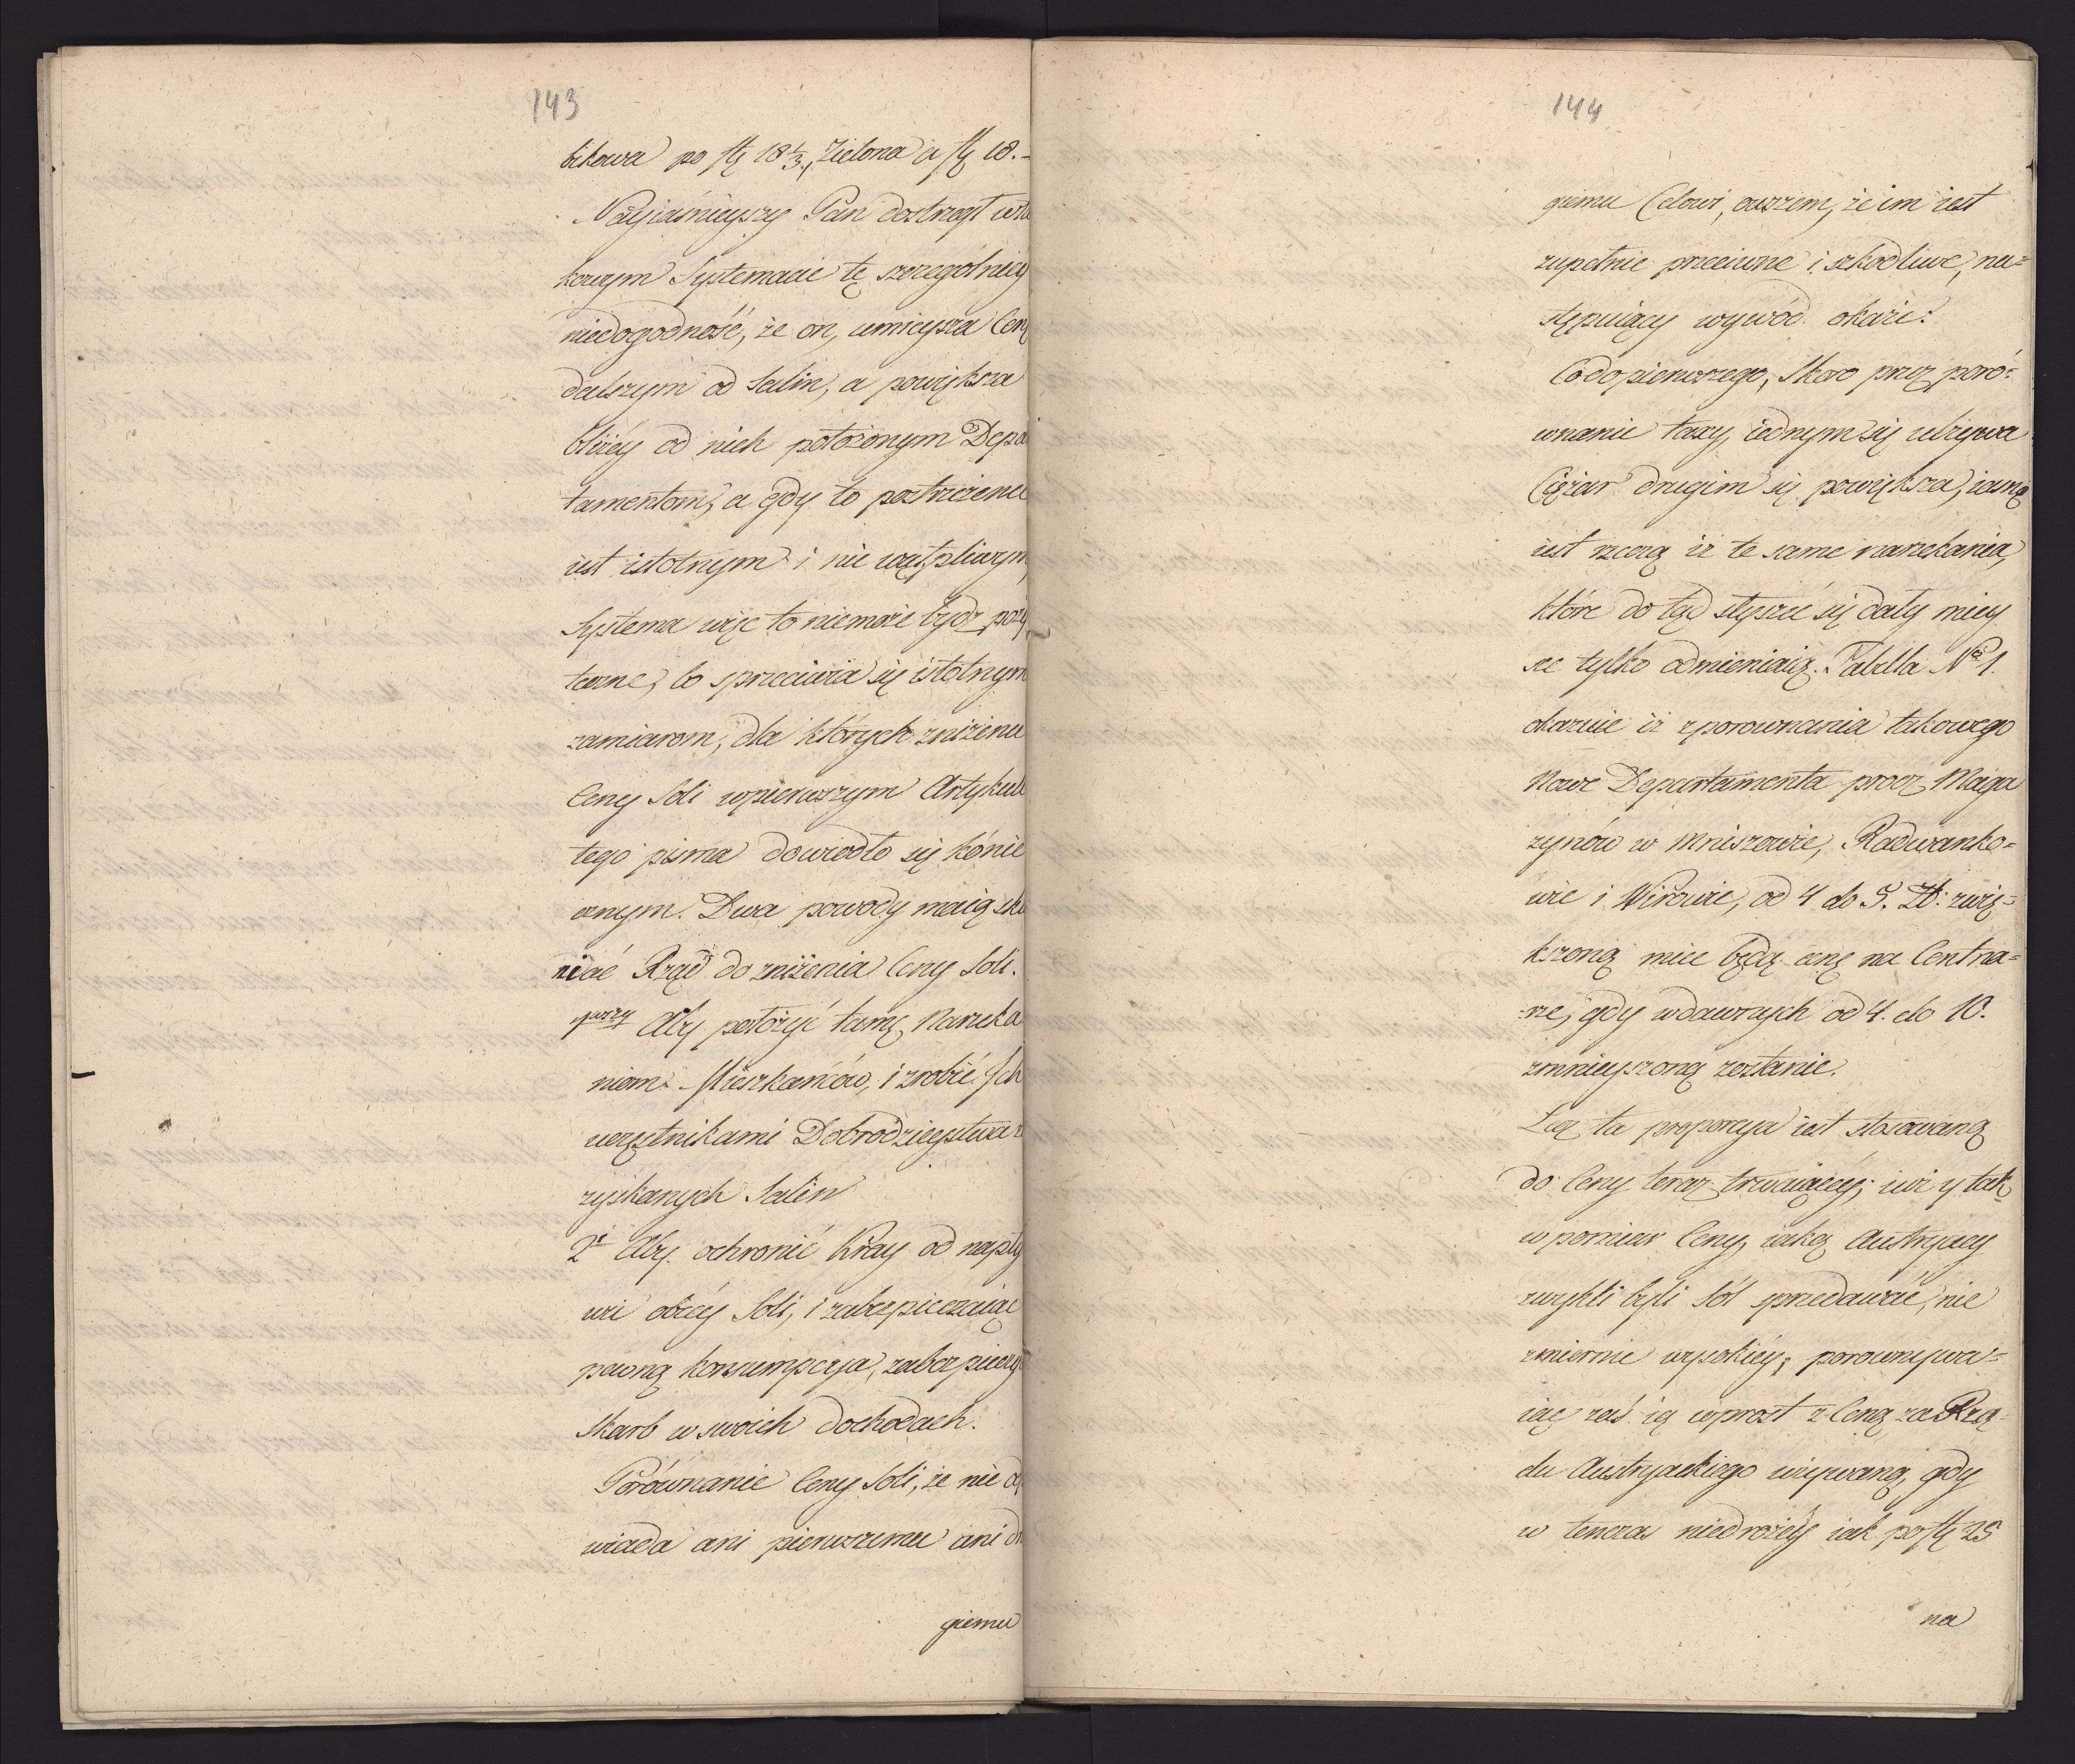 143
bikowa po fl 18 1/3, Zielona a fl 18.-
Nayiaśnieyszy Pan dostrzegł w ta
kowym Systemacie tę szczególniey
niedogodność, że on, umieysza Cen
dalszym od Salin, a powiększa
bliżey od nich położonym Depar
tamentom, a gdy to postrzeżenie
iest istotnym i nie wątpliwym,
Systema więc to niemoże bydź poży
teczne, bo sprzeciwia się istotnym
zamiarom, dla których zniżenie
Ceny Soli w pierwszym Artykule
tego pisma dowiodło się koniec
cznym. Dwa powody maią skł
niać Rząd do zniżenia Ceny Soli.
1wszy Aby położyć tamę Narzeka
niom Mieszkańców, i zrobić Ich
uczęstnikami Dobrodzieystwa z
zyskanych Salin
2i Aby ochronić Kray od napły
wu obcey Soli, i zabezpieczaiąc
pewną konsumpcyą, zabezpieczy
Skarb w swoich dochodach.
Porównanie Ceny Soli, że nie od
wiada ani pierwszemu ani dr
giemu
144
giemu Celowi, owszem, że im iest
zupełnie przeciwne i szkodliwe, na=
stępuiący wywód okaże:
Co do pierwszego, Skoro przez poró=
wnanie taxy, iednym się ubrywa
Ciężar drugim się powiększa, iasną
iest rzeczą iż te same narzekania,
które do tąd słyszeć się dały miey
sce tylko odmieniaią. Tabella No 1.
okazuie iż z porownania takowego
Nowe Departamenta procz Maga
zynów w Mniszewie, Radwanko=
wie i Wirowie, od 4 do 5. Zł: zwię=
kszoną mieć będą cenę na Centna=
rze, gdy w dawnych od 4. do 10.
zmnieyszoną zostanie.
Lecz ta proporcya iest stosowaną
do Ceny teraz trwaiącey; iuż y tak
w pomiar Ceny, iaką Austryacy
zwykli byli Sól sprzedawać, nie
zmiernie wysokiey; porownywa=
iąc zaś ią wprost z Ceną za Rzą-
du Austryackiego używaną, gdy
w tenczas niedrożey iak po fl 25
na